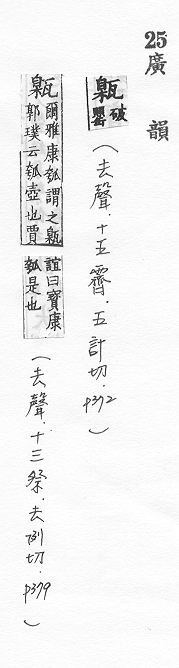 25廣韻
甈 破罌 (去聲.十五霽.五計切.p372)
甈 爾雅康瓠謂之甈
郭璞云瓠壺也賈
誼曰寶康
瓠是也 (去聲.十三祭.去例切.p379)